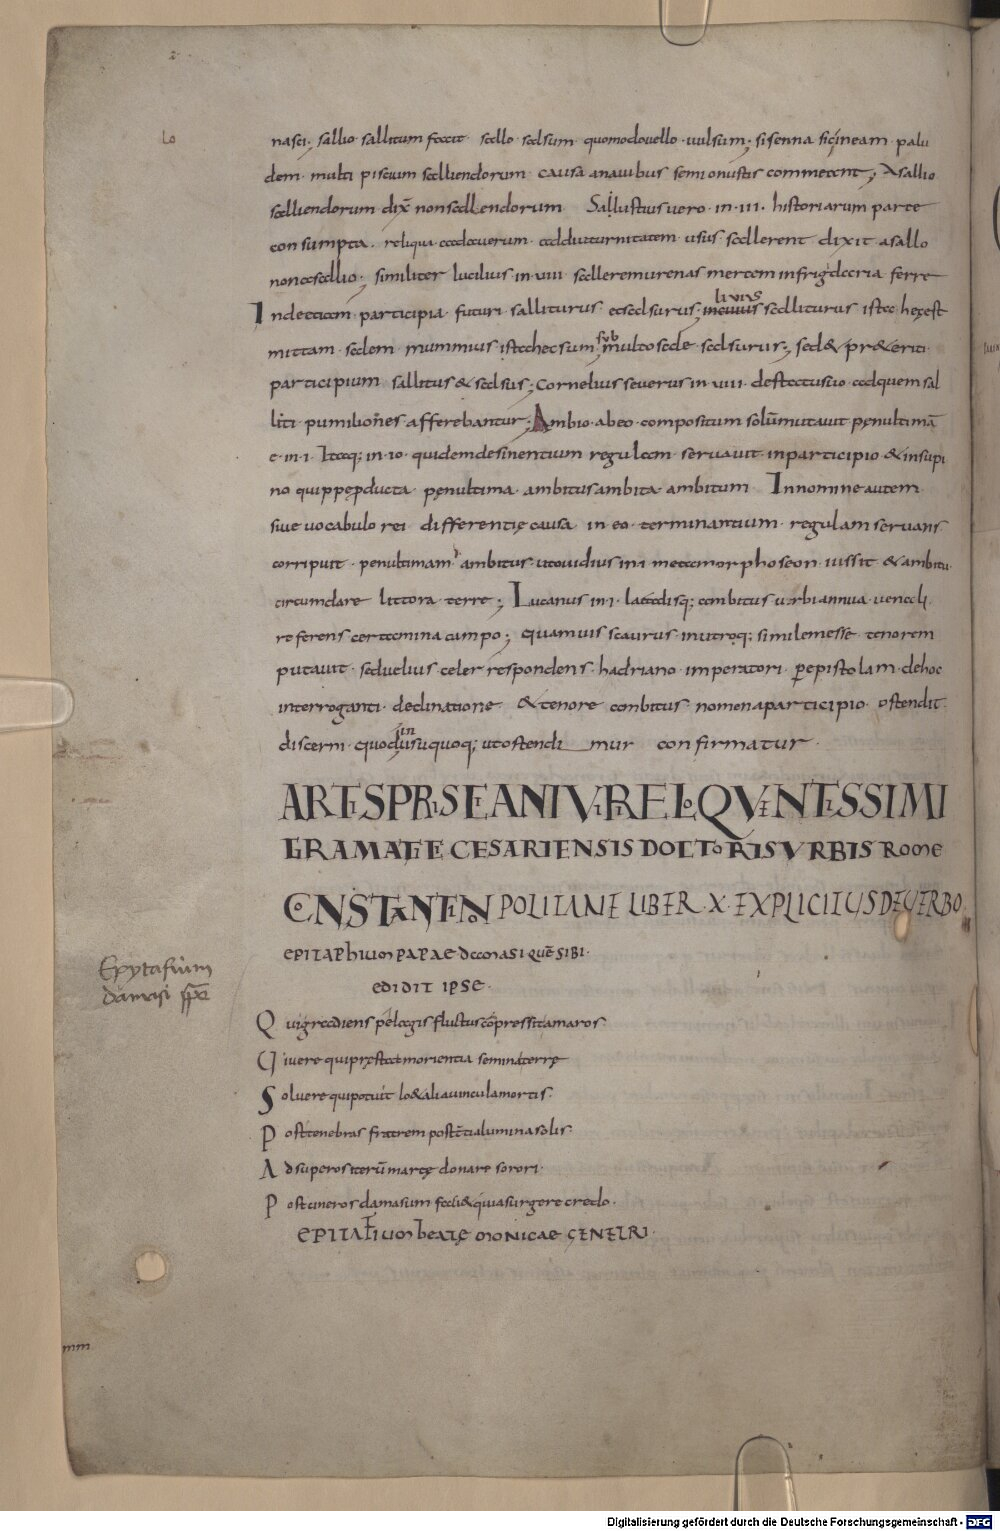 nasci; sallio · sallitum facit · sallo · salsum · quomodo uello · uulsum; sisenna siçineam · palu
dem · multi piscium salliendorum causa anauibus semionustis commeant; Asallio
salliendorum dix̄ non sallendorum Sallustius uero · in · iii · historiarum parte
consumpta · reliqua cadauerum · addiuturnitatem · usus sallerent dixit a sallo
non a sallio; similiter lucilius in · uiii · sallere murenas mercem infrigdaria ferre
Indeetiam participia · futuri · salliturus · et salsurus; liuius salliturus istaec hęc est
mittam · salem · mummius istaec hec sum sub multo sale · salsurus; sed & pr&eriti
participium sallitus & salsus; Cornelius seuerus in · uiii · de statu suo · ad quem sal
liti · pumiliones afferebantur; Ambio · ab eo · compositum solū mutauit pęnultimā
e · in · i · Itaq; in · io · quidem desinentium regulam · seruauit in participio & in supi
no quippe ꝓducta · pęnultima · ambitus ambita ambitum · In nomine autem
siue uocabulo rei differentię causa in eo · terminantium · regulam seruans
corripuit · penultimam ambitus · ut ouidius in i metamorphoseon · iussit & ambitu
circumdare littora terre; Lucanus in · i · laetalisq; ambitus urbi annua uenali
referens certamina campo; quamuis scaurus in utroq; simile messe tenorem
putauit · sed uelius celer respondens · hadriano imperatori ꝑ epistolam · de hoc
interroganti · declinatione & tenore ambitus nomen a participio ostendit
discerni quod in usu quoq; ut ostendi mur confirmatur ·
ARTIS PRISCIANI VIRI ELOQVENTISSIMI
GRAMATICE CESARIENSIS DOCTORIS VRBIS ROME
CONSTANTINO POLITANE LIBER · X · EXPLICIT IUS DE UERBO
EPITAPHIUM PAPAE damasi quē SIBI ·
EDIDIT IPSE ·
Epytafium
damasi ppe
Qui gradiens pelagis fluctus cōpressit amaros ·
Uiuere qui pręstat morientia semina terrę
Soluere qui potuit lo&alia uincula mortis ·
Post tenebras fratrem post tertia lumina solis
Ad superos iterū martę donare sorori ·
Post cineros damasum faci& quia surgere credo ·
EPITAFium beatę monicae GENETRI ·
Digitalisierung gefördert durch die Deutsche Forschungsgemeinschaft - DFG